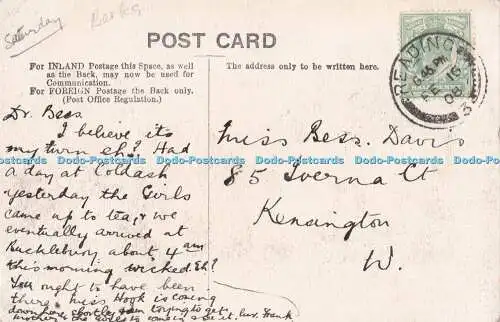 Saturday
Berks
POST CARD
For INLAND Postage this Space, as well
as the Back, may now be used for
Communication.
For FOREIGN Postage the Back only.
(Post Office Regulation.)
The address only to be written here.
READING
6.45 PM
FE 16
08
3
Dr. Bess.
I believe its
my twin eh? Had
a day at Coldash
yesterday the Girls
came up to tea, & we
eventually arrived at
Bucklebury about 4 am
this morning wicked. Eh?
You ought to have been
there, Miss Hook is coming
down here shortly, am trying to get
mother & the to come & see it. Luv. Frank
Miss Bess. Davis
85 Iverna Ct
Kensington
W.
Dodo-Postcards Dodo-Postcards Dodo-Postcards Dodo-Postcards Dodo-Postcards